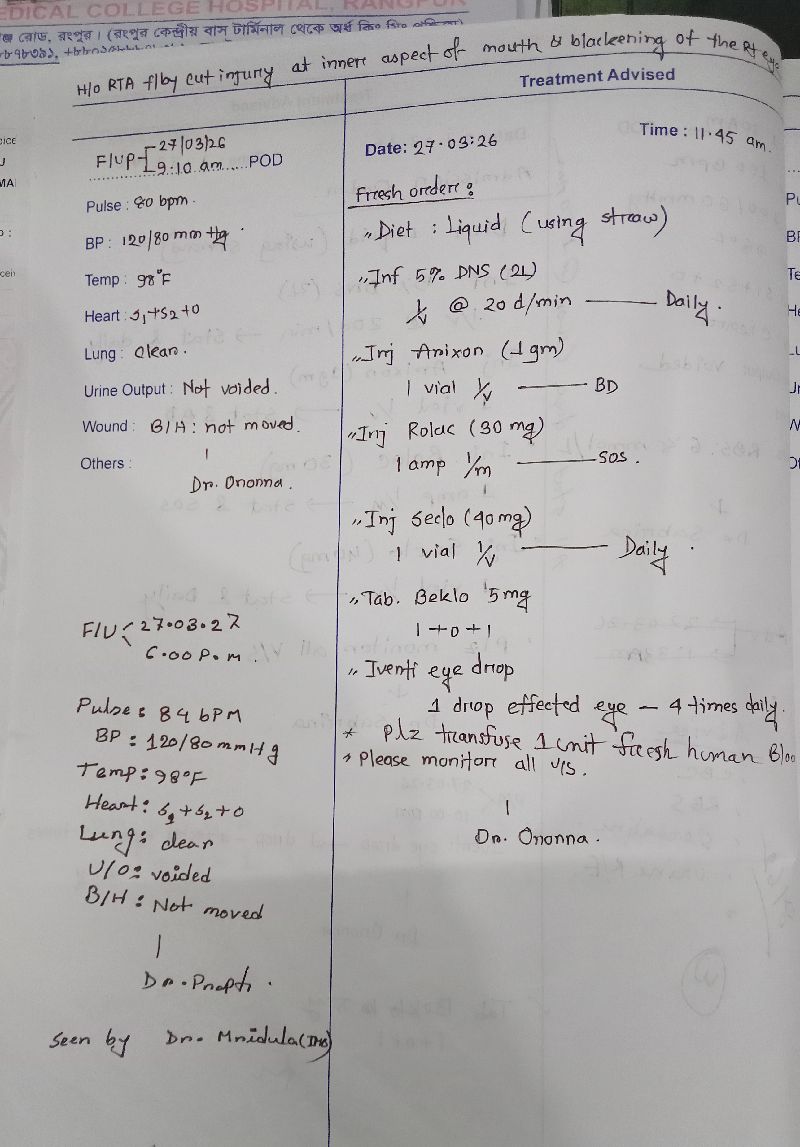 EDICAL COLLEGE HOSPITAL, RANGPUR
রোড, রংপুর। (রংপুর কেন্দ্রীয় বাস টার্মিনাল থেকে অর্ধ কিঃ মিঃ
H/o RTA f/by cut injury at inner aspect of mouth & blackening of the Rt eye
Treatment Advised
F/UP 27/03/26
9:10 am.....POD
Pulse : 80 bpm.
BP : 120/80 mm Hg
Temp : 98°F
Heart : S1+S2+0
Lung : Clear.
Urine Output : Not voided.
Wound : B/H : not moved.
Others :
Dr. Ononna.
F/U 27.03.27
6.00 P.m.
Pulse : 84 bPM
BP : 120/80 mmHg
Temp : 98°F
Heart : S1+S2+0
Lung : clear
U/O : voided
B/H : Not moved
Dr.
seen by Dr. Mridula
Date: 27.03:26
Time : 11.45 am.
Fresh order :
Diet : Liquid (using straw)
Inf 5% DNS (2L)
I/V @ 20 d/min — Daily.
Inj Arixon (1 gm)
1 vial I/V — BD
Inj Rolac (30 mg)
1 amp I/m — SOS.
Inj Seclo (40 mg)
1 vial I/V — Daily.
Tab. Beklo 5 mg
1+0+1
Iventi eye drop
1 drop effected eye — 4 times daily.
* Plz transfuse 1 unit fresh human Bloo
Please monitor all V/S.
Dr. Ononna.